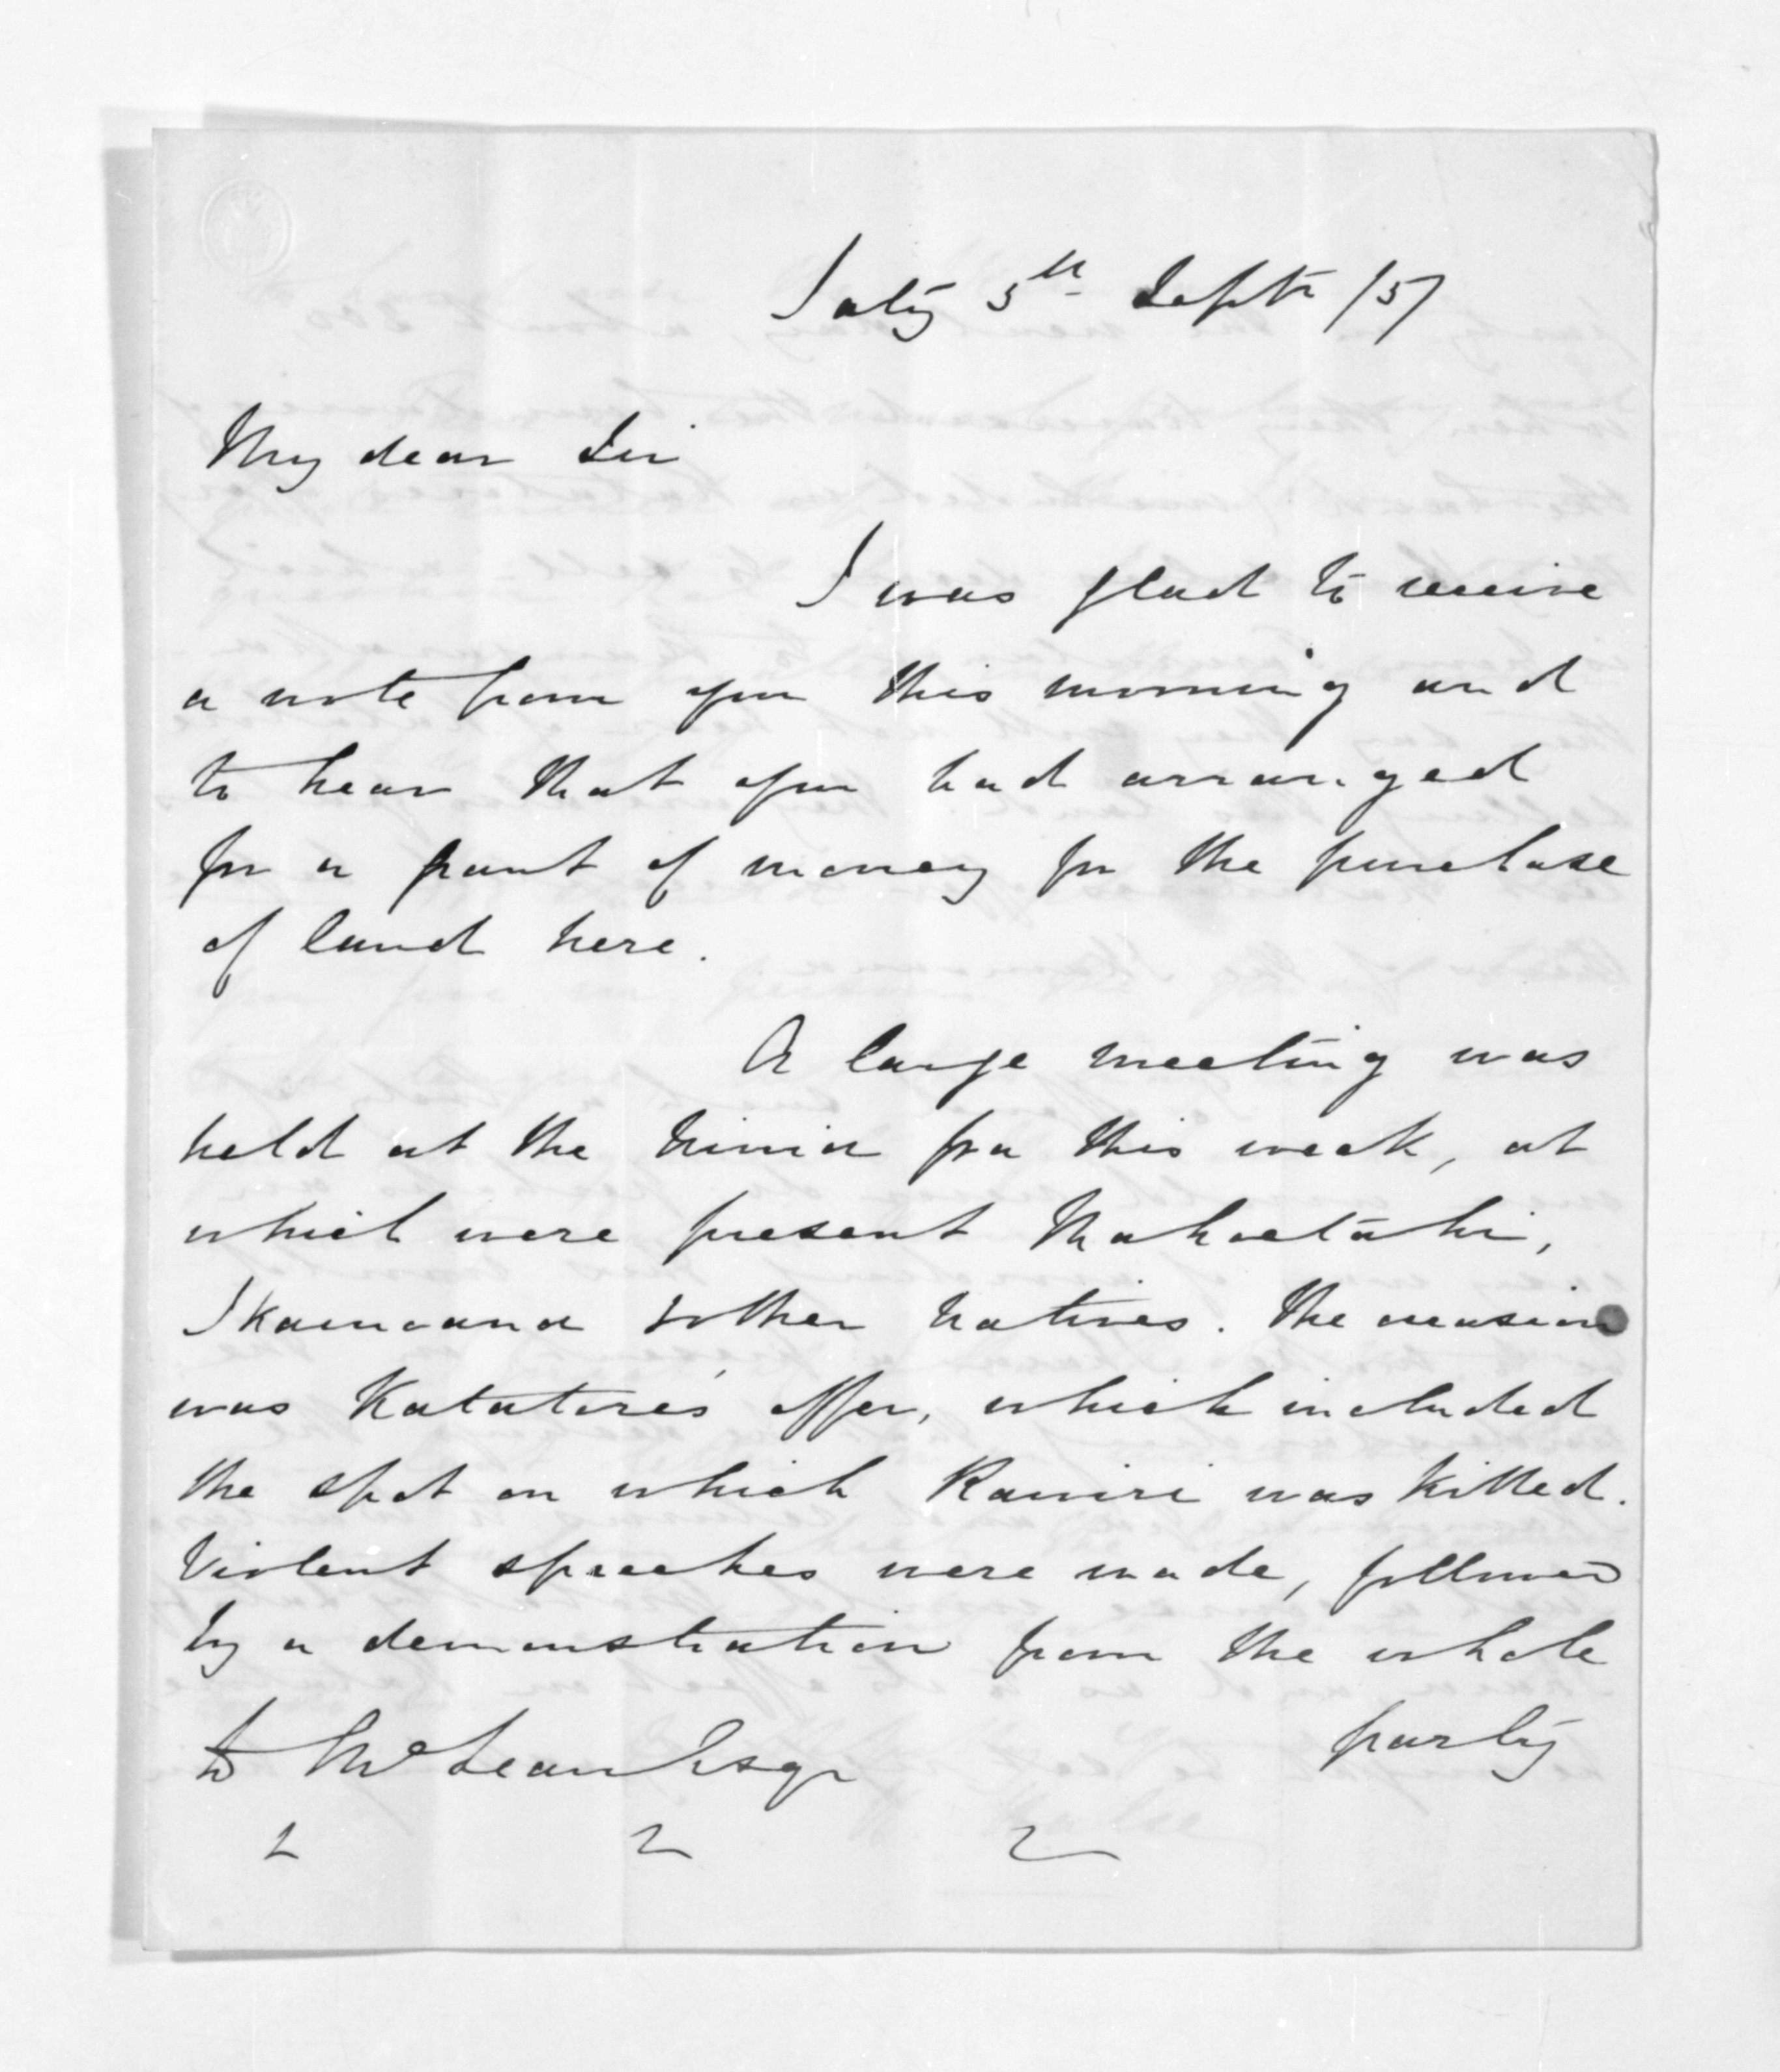 Saty 5th Septr /57
My dear Sir
I was glad to receive
a note from you this morning and
to hear that you had arranged
for a grant of money for the purchase
of land here.
A large meeting was
held at the Ninia pa this week, at
which were present Mahoetahi,
Ikamoana & other Natives. The occasion
was Katatore's offer, which included
the spot on which Rawiri was killed.
Violent speeches were made, followed
by a demonstration from the whole
party
D McLean Esqr
2 2 2